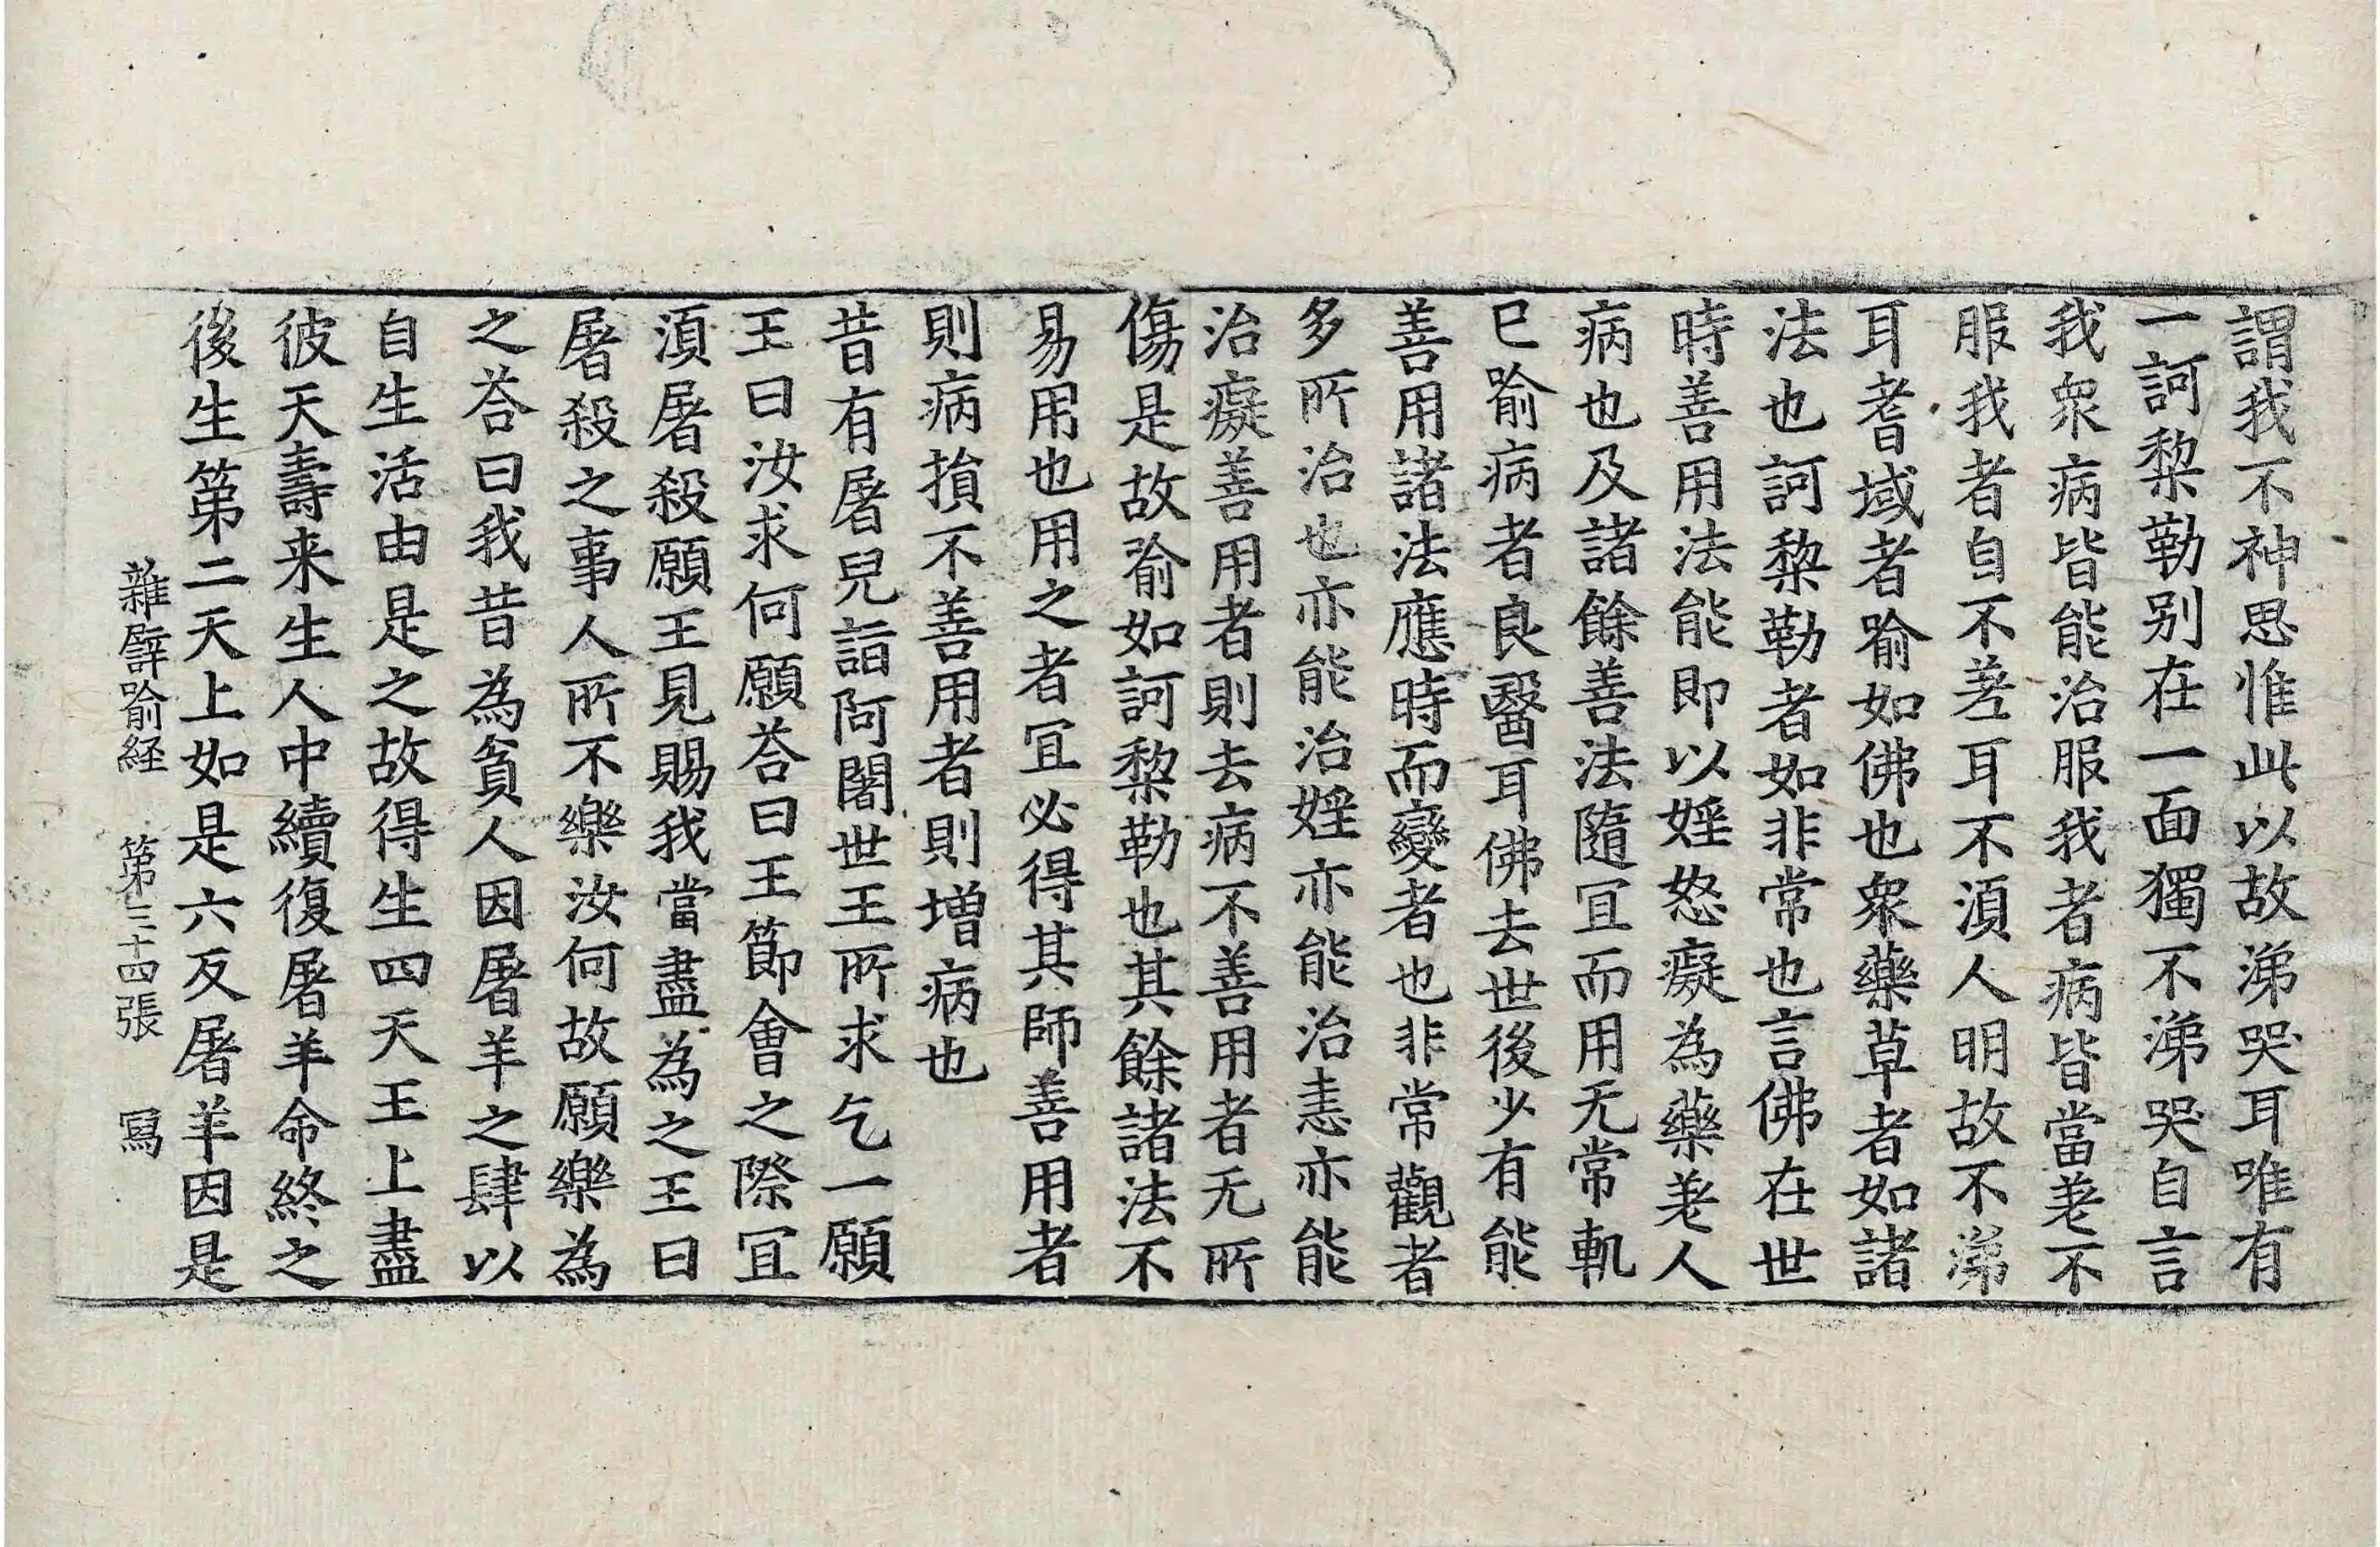 謂我不神思惟此以故涕哭耳唯有
一訶棃勒別在一面獨不涕哭自言
我衆病皆能治服我者病皆當差不
服我者自不差耳不湏人明故不涕
耳耆域者喻如佛也衆藥草者如諸
法也訶棃勒者如非常也言佛在世
時善用法能即以婬怒癡為藥差人
病也及諸餘善法隨冝而用无常軌
已喻病者良醫耳佛去世後少有能
善用諸法應時而變者也非常觀者
多所治也亦能治婬亦能治恚亦能
治癡善用者則去病不善用者无所
傷是故喻如訶棃勒也其餘諸法不
易用也用之者冝必得其師善用者
則病損不善用者則增病也
昔有屠兒詣阿闍世王所求乞一願
王曰汝求何願荅曰王節會之際冝
湏屠殺願王見賜我當盡為之王曰
屠殺之事人所不樂汝何故願樂為
之荅曰我昔為貧人因屠羊之肆以
自生活由是之故得生四天王上盡
彼天壽来生人中續復屠羊命終之
後生第二天上如是六反屠羊因是
雜譬喻経 第三十四張 寫